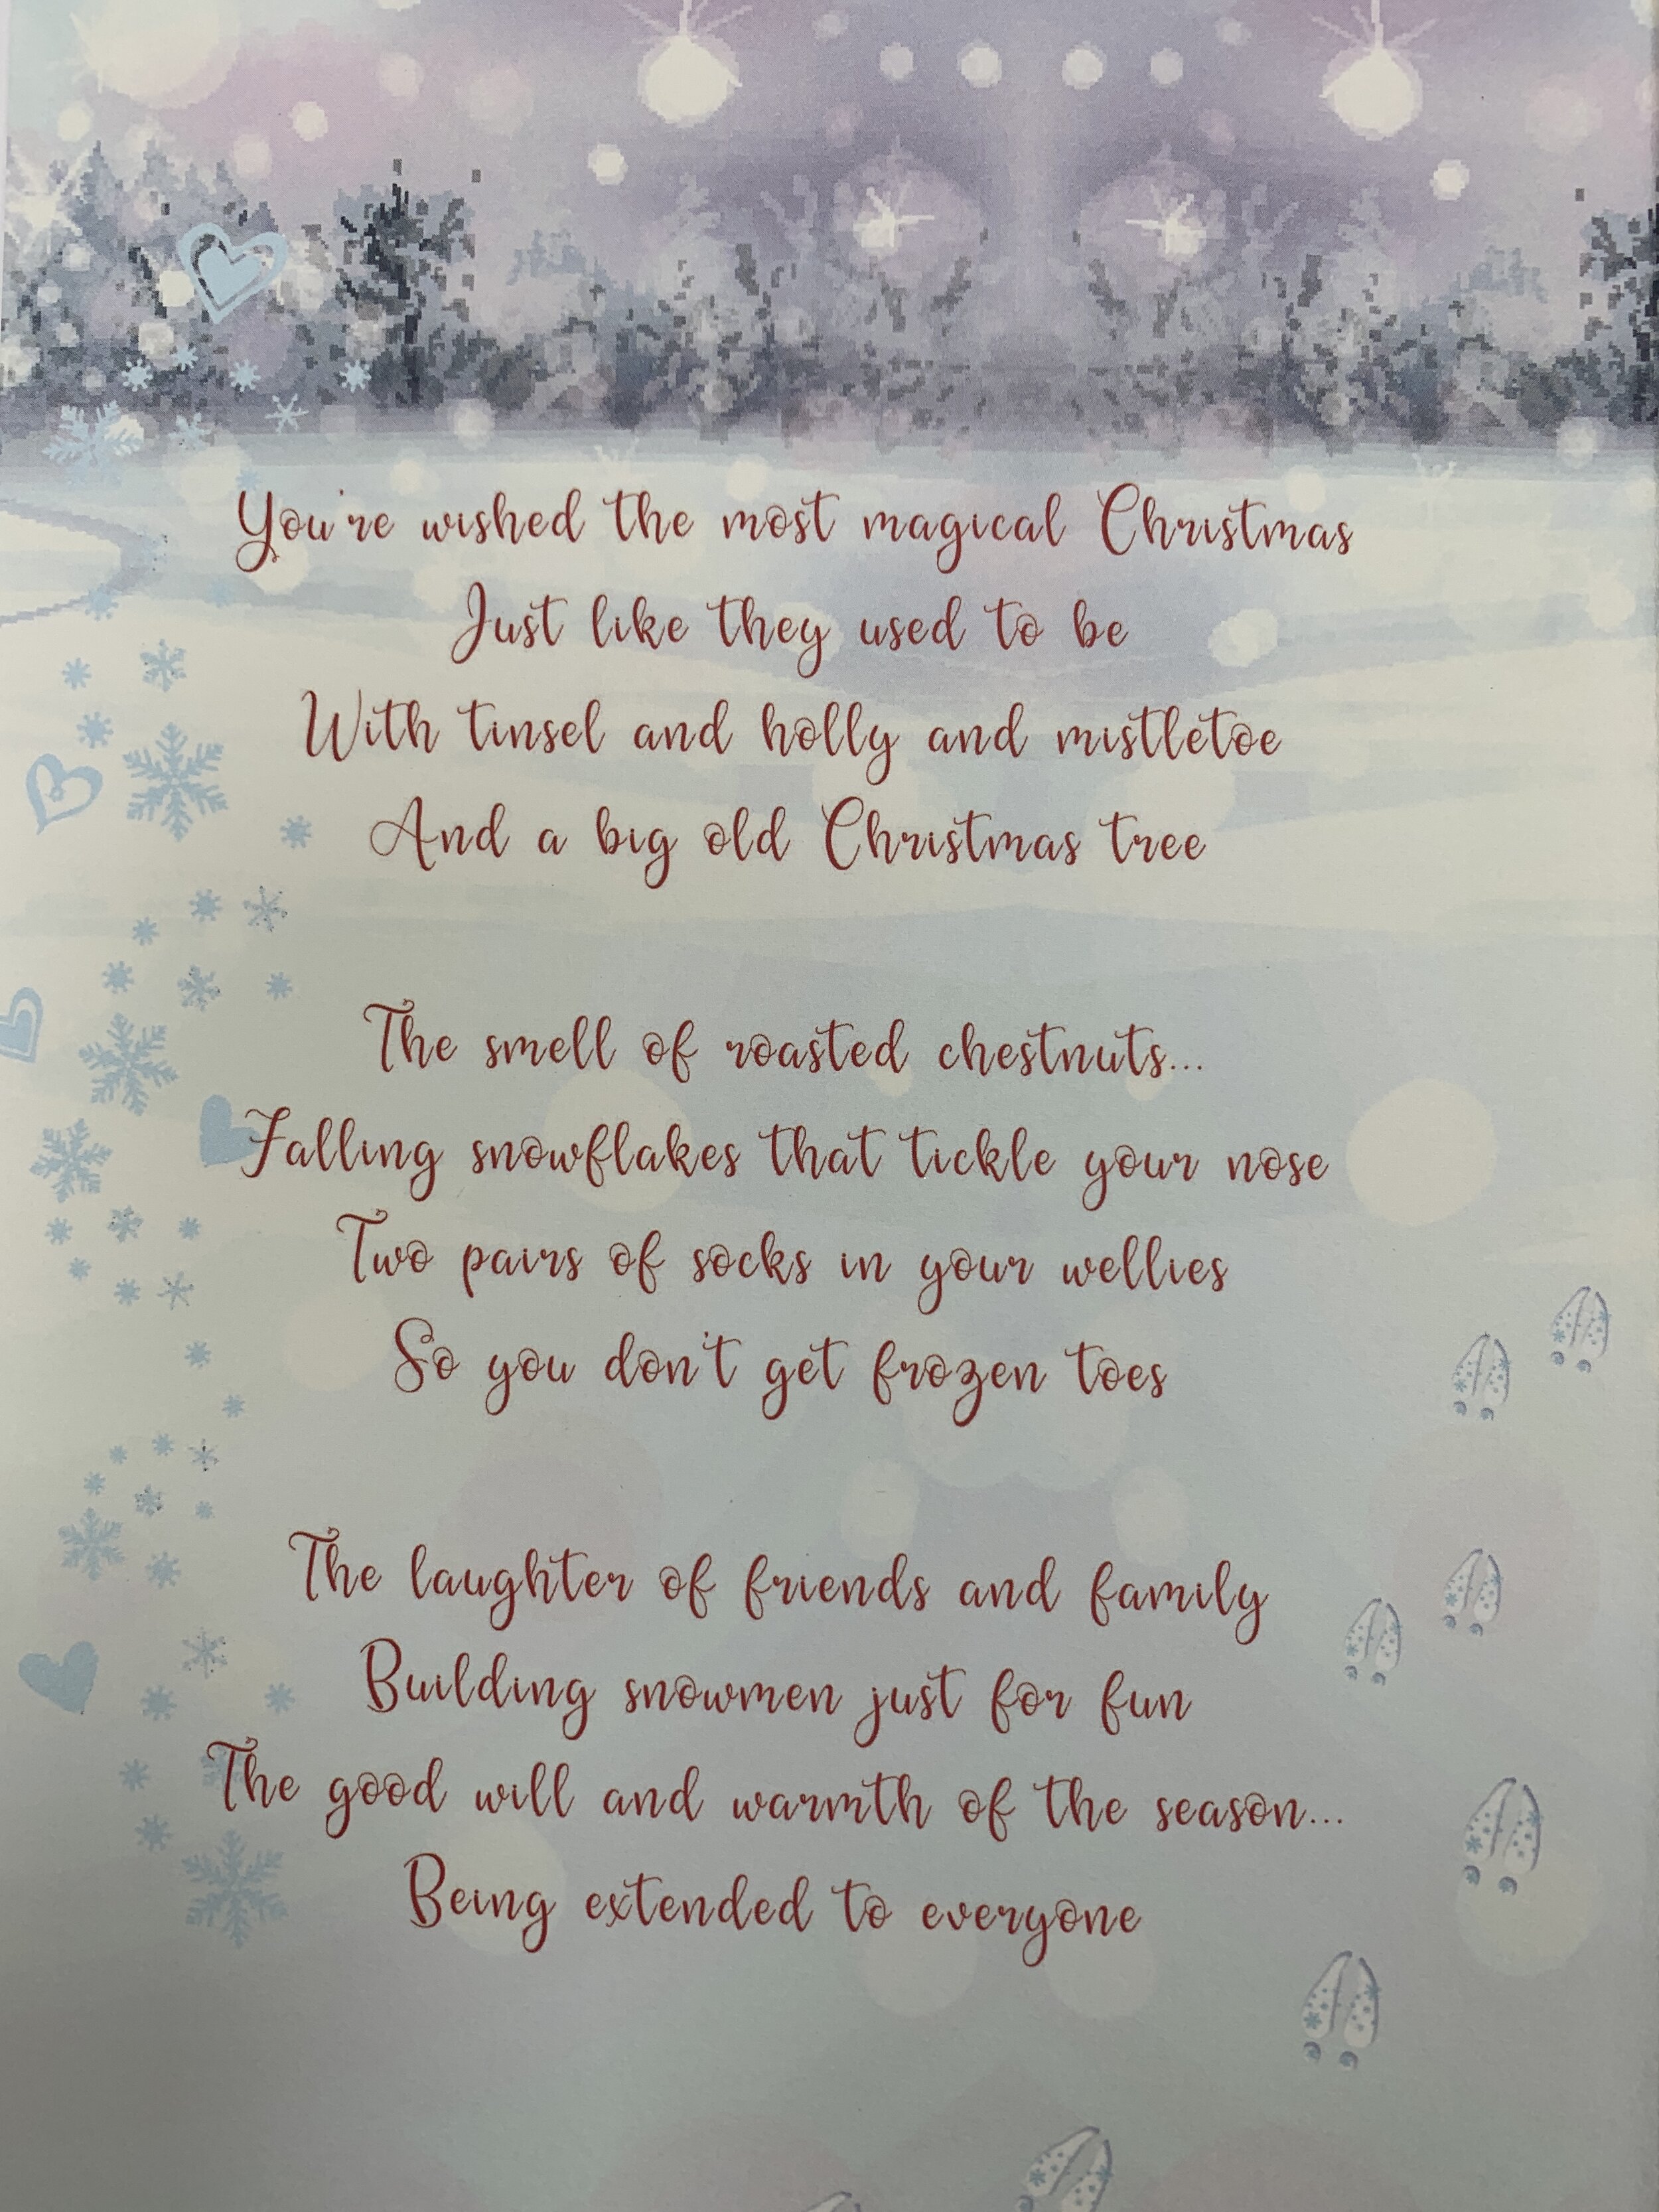 You're wished the most magical Christmas
Just like they used to be
With tinsel and holly and mistletoe
And a big old Christmas tree
The smell of roasted chestnuts...
Falling snowflakes that tickle your nose
Two pairs of socks in your wellies
So you don't get frozen toes
The laughter of friends and family
Building snowmen just for fun
The good will and warmth of the season...
Being extended to everyone